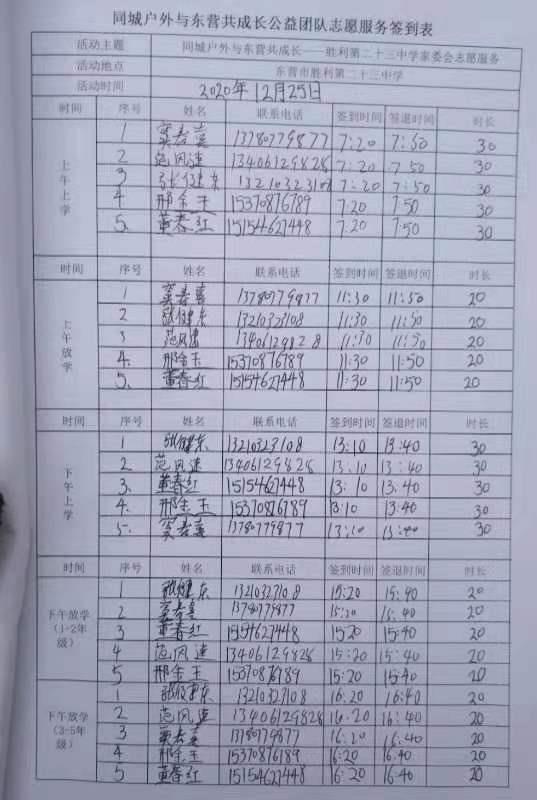 同城户外与东营共成长公益团队志愿服务签到表
活动主题 同城户外与东营共成长——胜利第二十三中学家委会志愿服务
活动地点 东营市胜利第二十三中学
活动时间 2020年12月25日
时间 序号 姓名 联系电话 签到时间 签退时间 时长
上午上学
1 窦春喜 13780779877 7:20 7:50 30
2 范风速 13406129828 7:20 7:50 30
3 张健东 13210323108 7:20 7:50 30
4 邢金玉 15370876789 7:20 7:50 30
5. 董春红 15154627448 7:20 7:50 30
时间 序号 姓名 联系电话 签到时间 签退时间 时长
上午放学
1 窦春喜 13780779877 11:30 11:50 20
2 张健东 13210323108 11:30 11:50 20
3 范风速 13406129828 11:30 11:50 20
4. 邢金玉 15370876789 11:30 11:50 20
5. 董春红 15154627448 11:30 11:50 20
时间 序号 姓名 联系电话 签到时间 签退时间 时长
下午上学
1 张健东 13210323108 13:10 13:40 30
2 范风速 13406129828 13:10 13:40 30
3. 董春红 15154627448 13:10 13:40 30
4. 邢金玉 15370876789 13:10 13:40 30
5. 窦春喜 13780779877 13:10 13:40 30
时间 序号 姓名 联系电话 签到时间 签退时间 时长
下午放学（1-2年级）
1 张健东 13210323108 15:20 15:40 20
2 窦春喜 13780779877 15:20 15:40 20
3 董春红 15154627448 15:20 15:40 20
4 范风速 13406129828 15:20 15:40 20
5 邢金玉 15370876789 15:20 15:40 20
下午放学（3-5年级）
1 张健东 13210323108 16:20 16:40 20
2 范风速 13406129828 16:20 16:40 20
3 窦春喜 13780779877 16:20 16:40 20
4 邢金玉 15370876789 16:20 16:40 20
5 董春红 15154627448 16:20 16:40 20